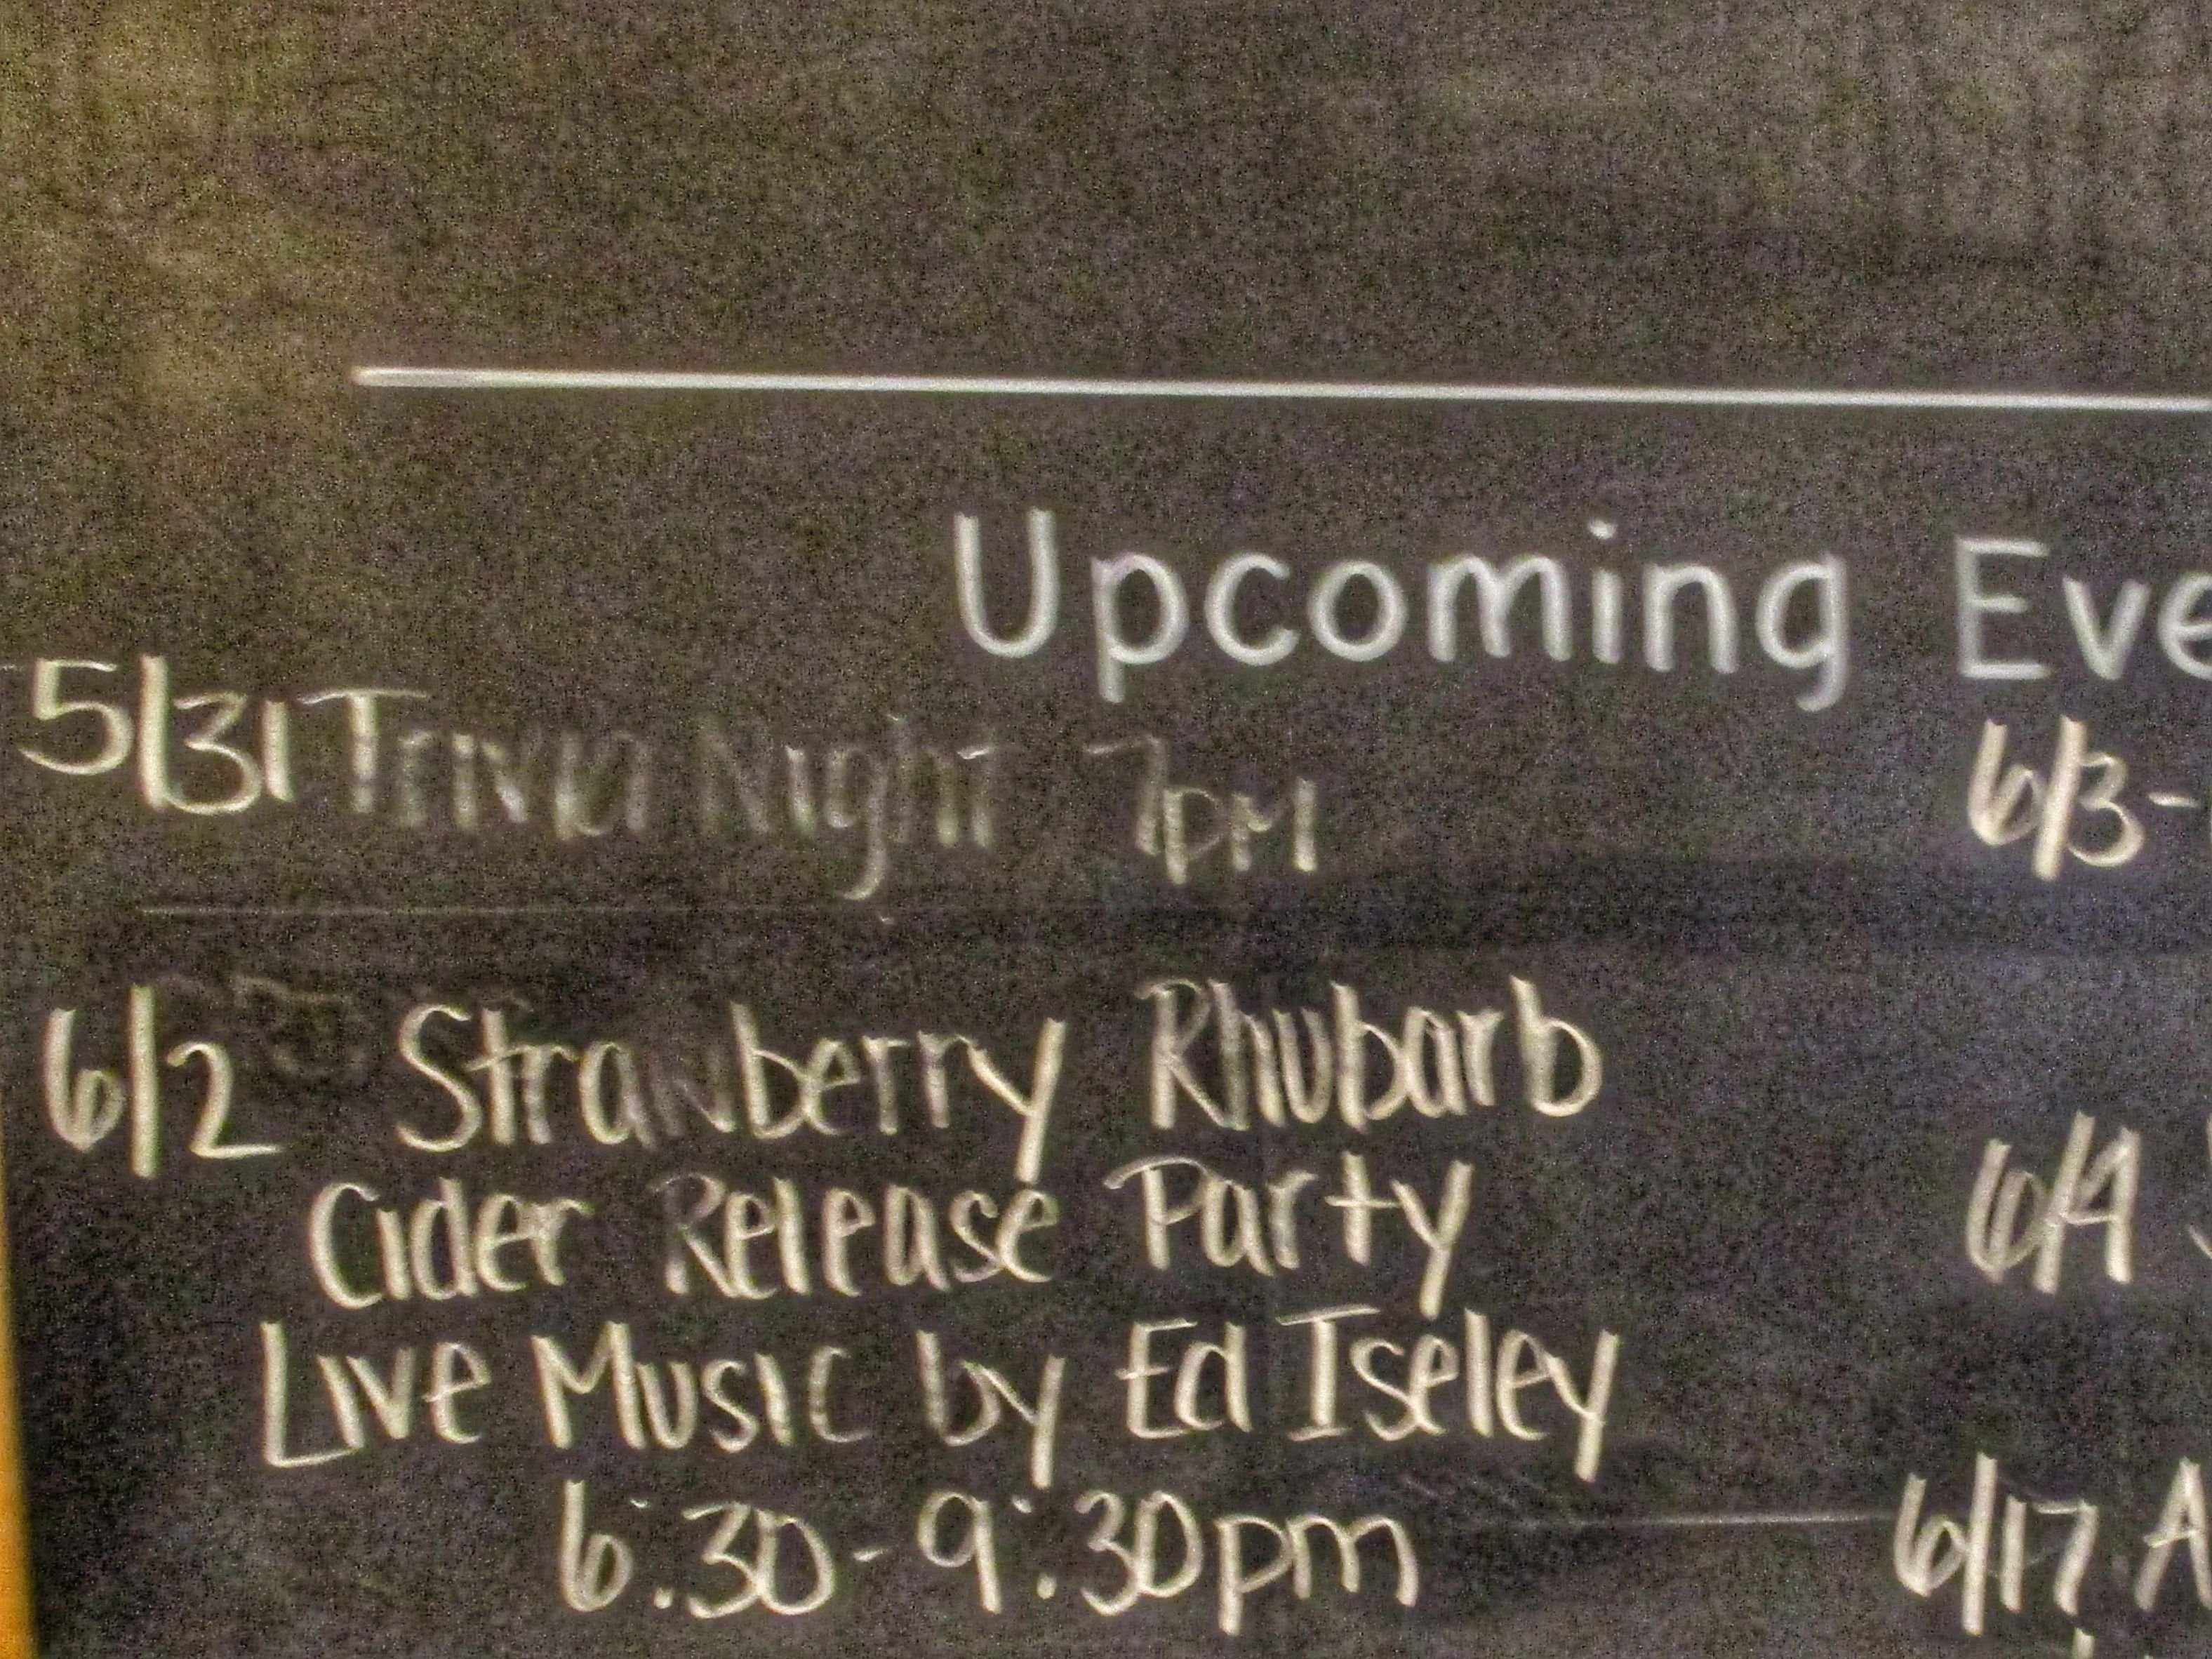 Upcoming Eve
5/31 Trivia Night 7PM
6/2 Strawberry Rhubarb
Cider Release Party
Live Music by Ed Iseley
6:30-9:30pm
6/3-
6/4
6/17 A